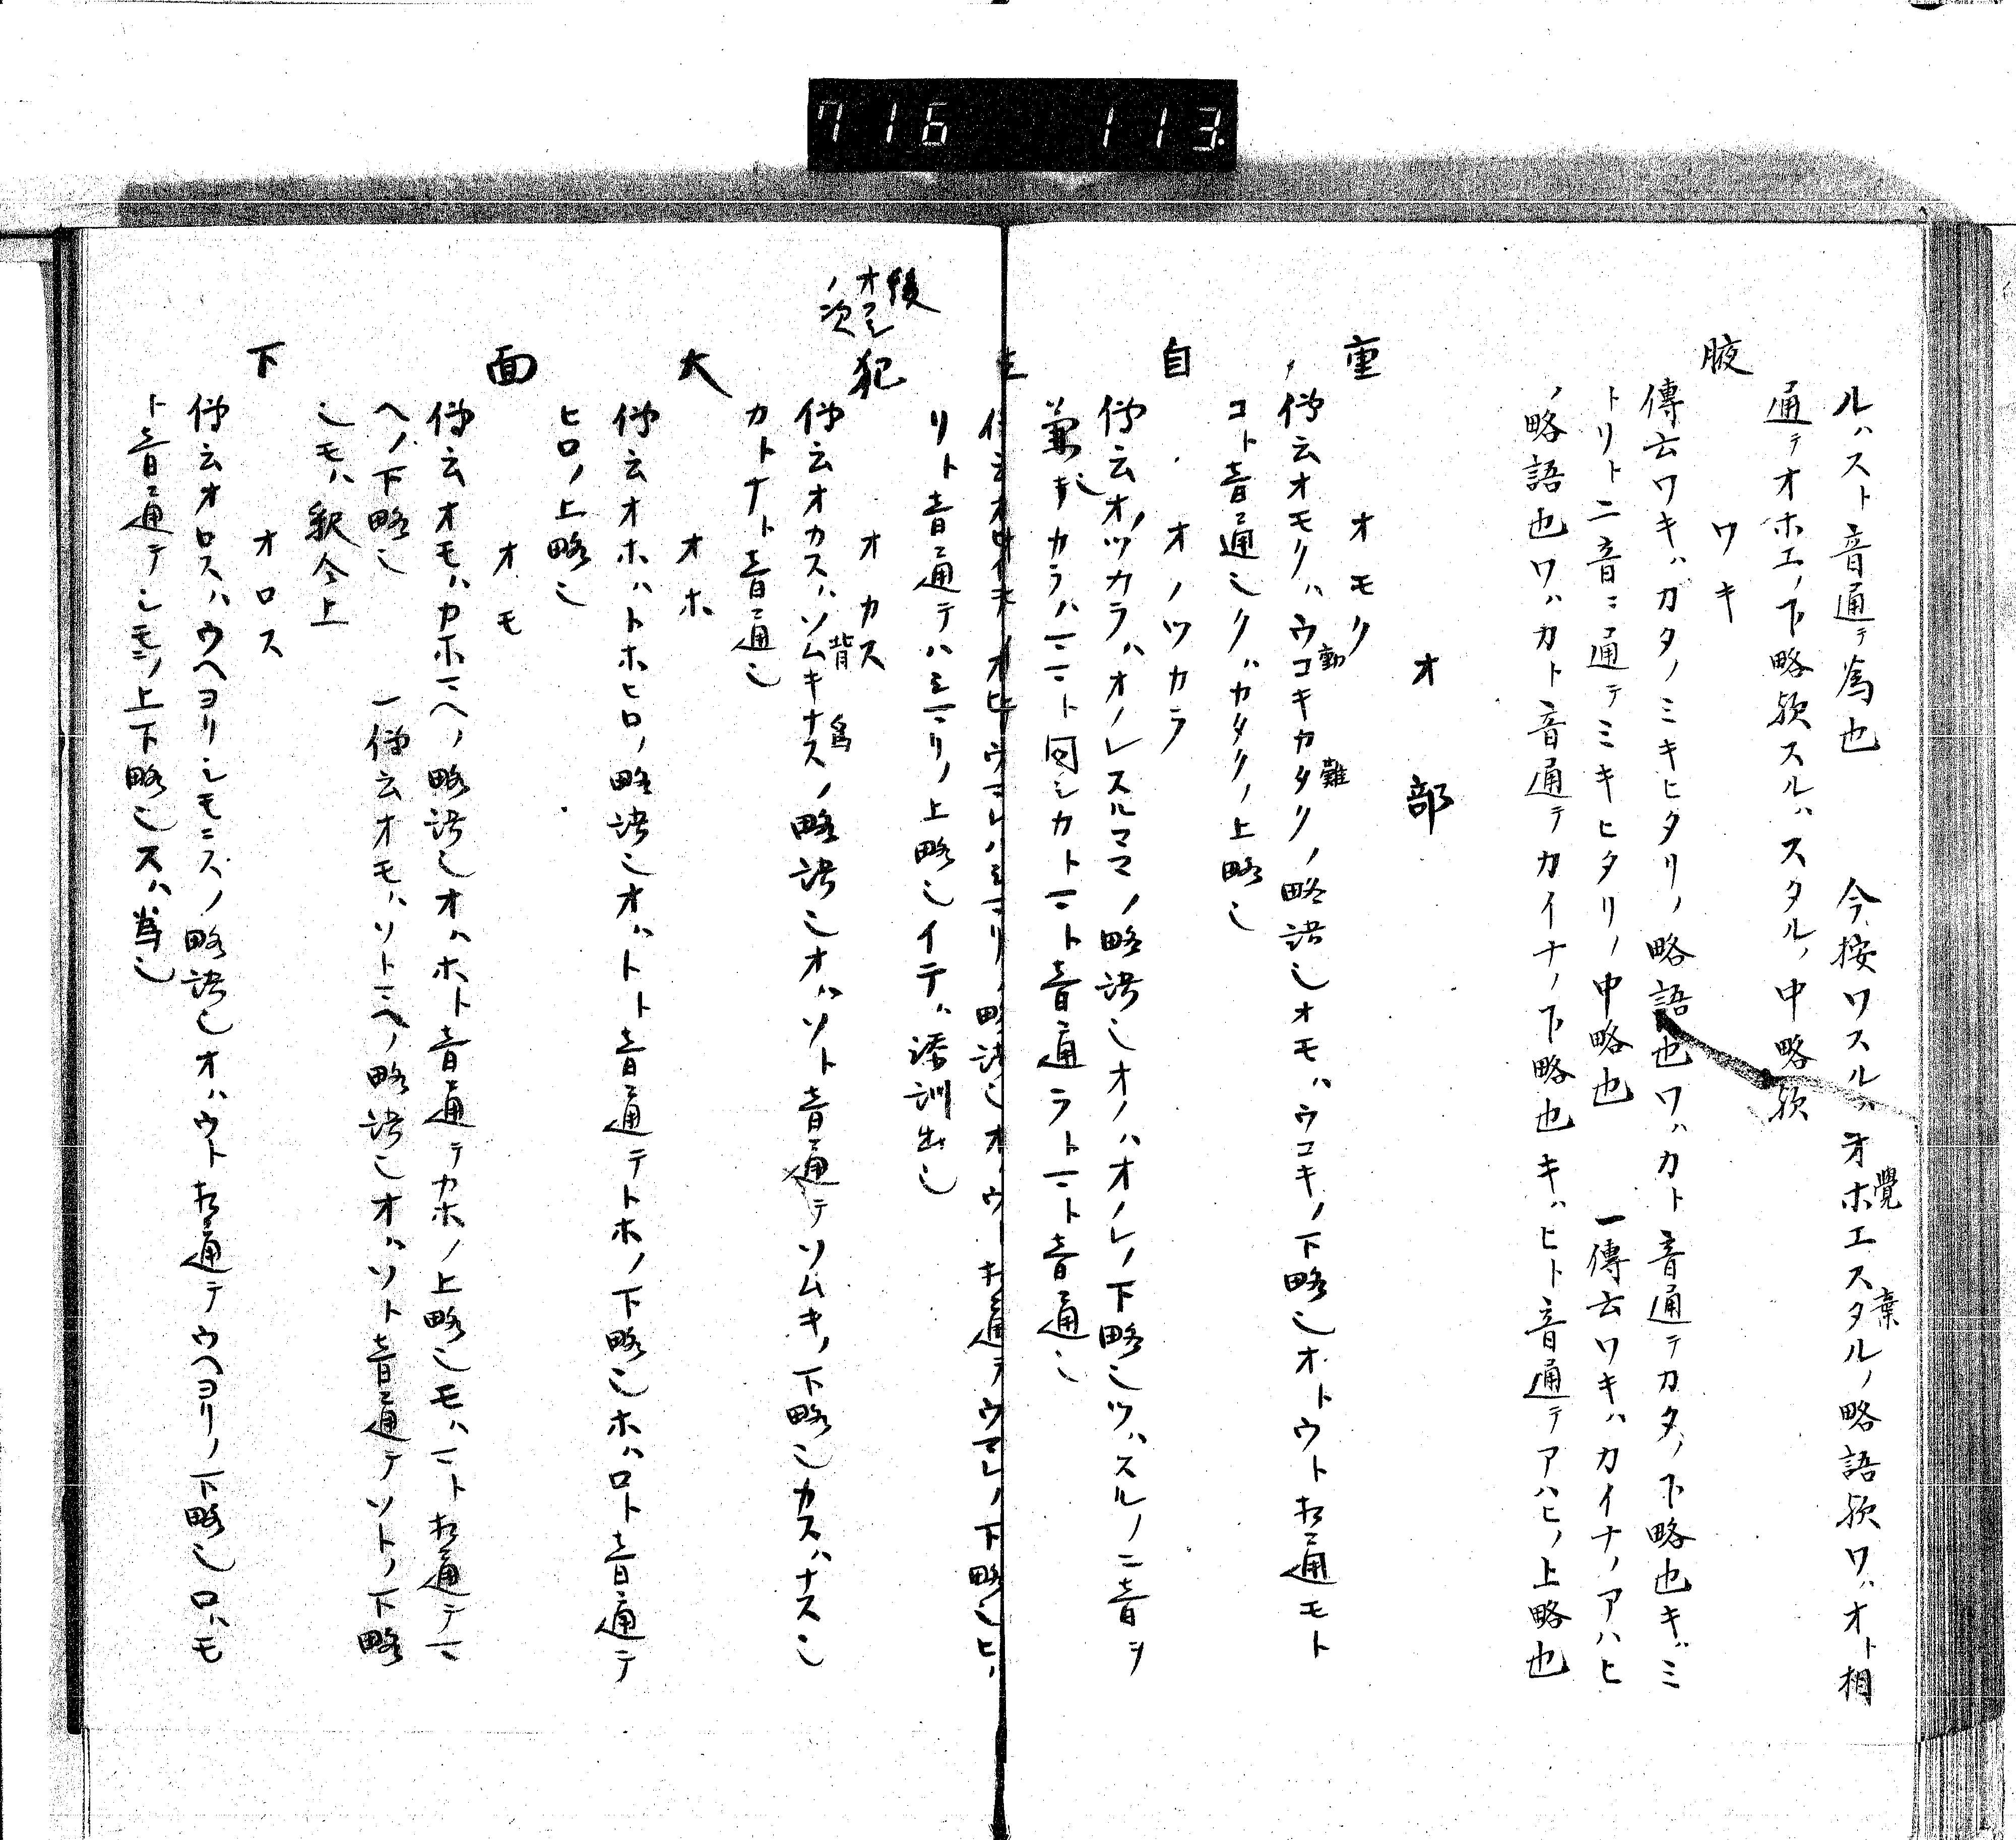 716 113
ルハスト音通テ為也 今按ワスルハオホエスタルノ略語歟ワハオト相
覺 棄
通テオホエノ下略歟スルハスタルノ中略歟
腋 ワキ
傳云ワキハカタノミキヒタリノ略語也ワハカト音通テカタノ下略也キハミ
トリト二音ニ通テミキヒタリノ中略也 一傳云ワキハカイナノアハヒ
ノ略語也ワハカト音通テカイナノ下略也キハヒト音通テアハヒノ上略也
オ部
重 オモク
傳云オモクハウコキカタクノ略語也オモハウコキノ下略也オトウト相通モト
動 難
コト音通也クハカタクノ上略也
自 オノツカラ
傳云オノツカラハオノレスルママノ略語也オノハオノレノ下略也ツハスルノ二音ヲ
兼タ也カラハママト同シカトマト音通ラトマト音通也
リト音通テハミマリノ上略也イテハ添訓出也
後オコシノ次
犯 オカス
傳云オカスハソムキナスノ略語也オハソト音通テソムキノ下略也カスハナス也
背 為
カトナト音通也
大 オホ
傳云オホハトホヒロノ略語也オハトト音通テトホノ下略也ホハロト音通テ
ヒロノ上略也
面 オモ
傳云オモハカホマヘノ略語也オハホト音通テカホノ上略也モハマト相通テマ
ヘノ下略也 一傳云オモハソトマヘノ略語也オハソト音通テソトノ下略
也モハ釈今上
下 オロス
傳云オロスハウヘヨリシモニスノ略語也オハウト相通テウヘヨリノ下略也ロハモ
ト音通テシモニノ上下略也スハ為也